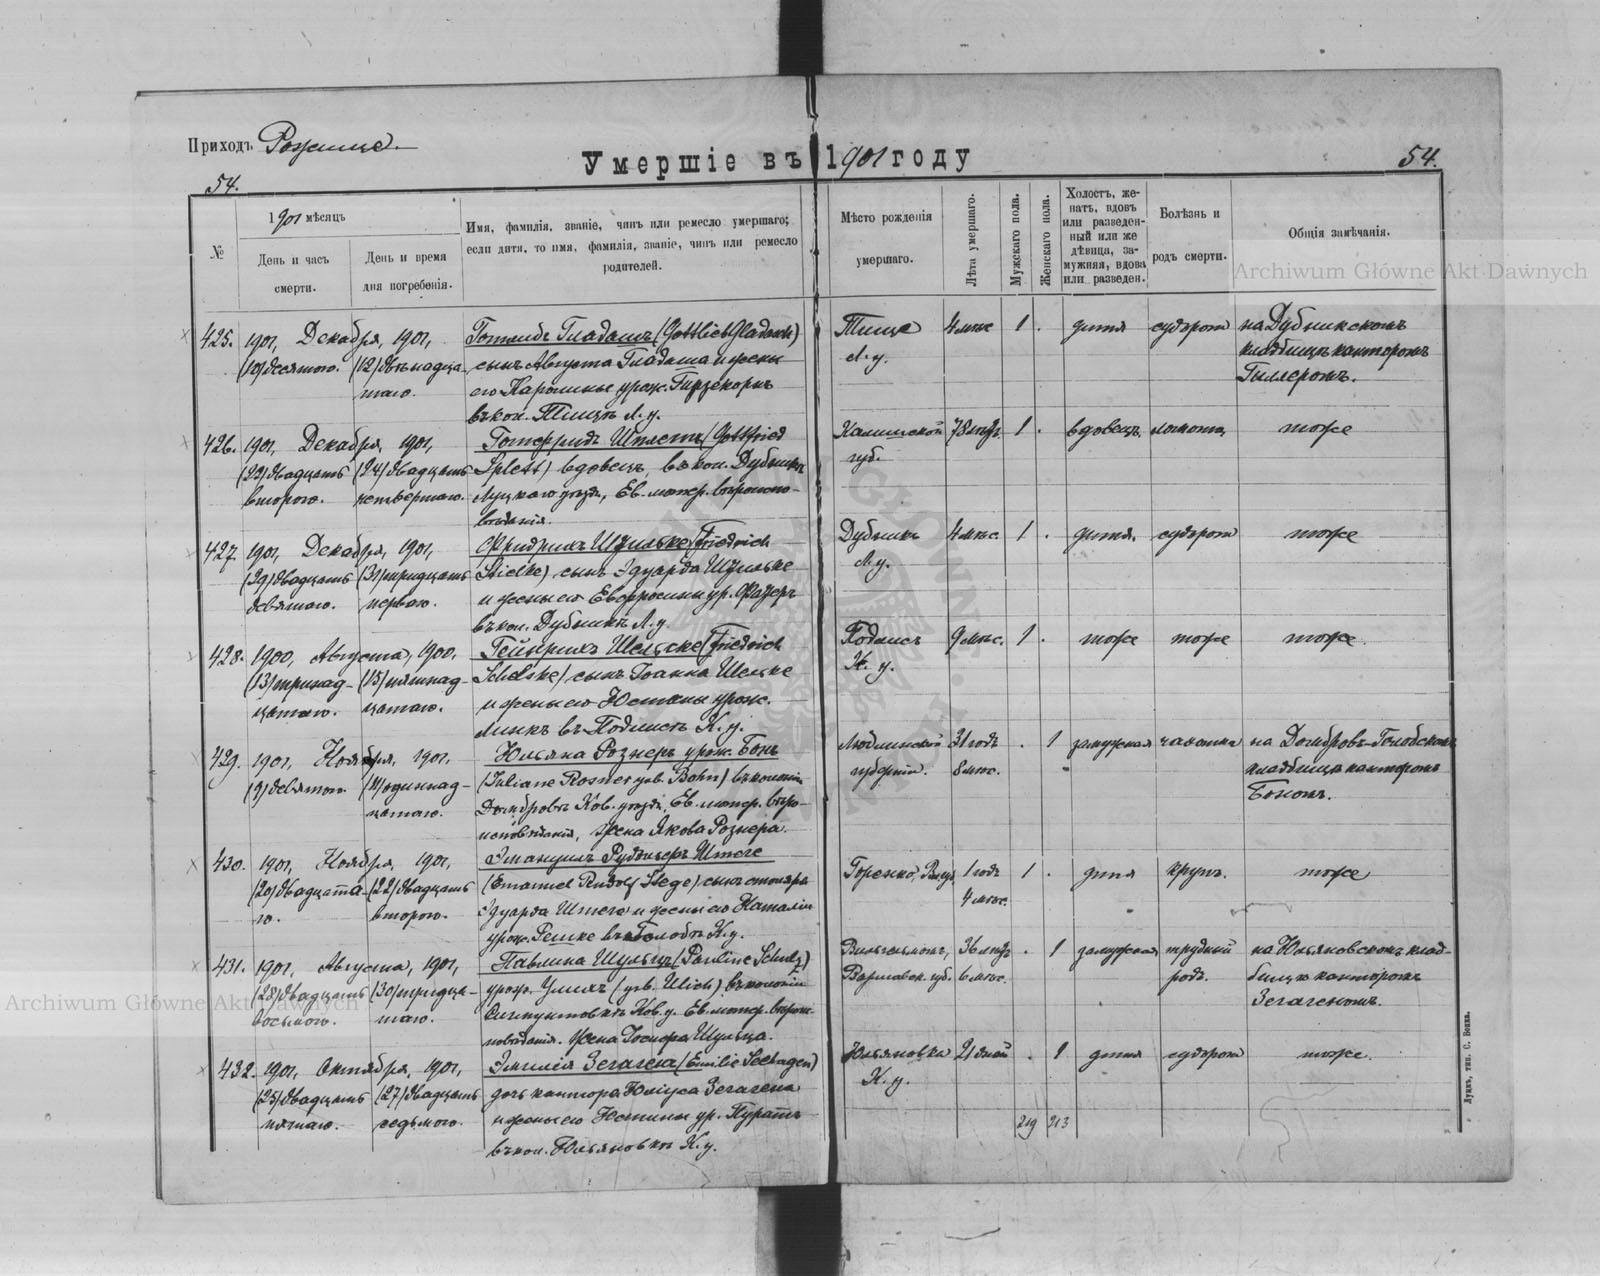 Приходъ Рожище.
Умершіе въ 1901 году
54.
54.
№
1901 мѣсяцъ
День и часъ
смерти.
День и время
дня погребенія.
Имя, фамилія, званіе, чинъ или ремесло умершаго;
если дитя, то имя, фамилія, званіе, чинъ или ремесло
родителей.
Мѣсто рожденія
умершаго.
Лѣта умершаго.
Мужскаго пола.
Женскаго пола.
Холостъ, же-
натъ, вдовъ
или разведен-
ный или же
дѣвица, за-
мужняя, вдова
или разведен.
Болѣзнь и
родъ смерти.
Общія замѣчанія.
425. 1901, Декабря, 1901, Готлибъ Гладашъ (Gottlieb Gladasch) Тище 4 мѣс 1 . дитя судорога на Дубникскомъ
(10) десятого. (12) двѣнадца- сынъ Августа Гладаша и жены Л. у. кладбищѣ канторомъ
таго. его Каролины урож. Гирзекорнъ Гиллеромъ.
въ кол. Тищѣ Л. у.
426. 1901, Декабря, 1901, Готфридъ Шплетъ (Gottfried Калишской 78 лѣтъ 1 . вдовецъ ломота тоже
(22) двадцать (24) двадцать Splett) вдовецъ, въ кол. Дубникъ губ.
второго. четвертаго. Луцкаго уѣзда, Ев. лютер. вѣроиспо-
вѣданія.
427. 1901, Декабря, 1901, Фридрихъ Штильке (Friedrich Дубникъ 4 мѣс. 1 . дитя. судорога тоже
(29) двадцать (31) тридцать Stielke) сынъ Эдуарда Штильке Л. у.
девятаго. перваго. и жены его Евфросины ур.
въ кол. Дубникъ Л. у.
428. 1900, Августа, 1900, Гейнрихъ Шельске (Friedrich Подлись 9 мѣс. 1 . тоже тоже тоже
(13) тринад- (15) пятнад- Schelske) сынъ Іоанна Шельске К. у.
цатаго. цатаго. и жены его Юстины урож.
Линкъ въ Подлисѣ К. у.
429. 1901, Ноября, 1901. Юльяна Рознеръ урож. Бонъ Люблинской 31 годъ . 1 замужная чахотка на Домбровѣ-Голобскомъ
(9) девятого (11) одиннад- (Juliane Rosner geb. Bohn) въ колоніи губерніи. 8 мѣс. кладбищѣ канторомъ
цатаго. Домбровѣ Ков. уѣзда, Ев. лютер. вѣро- Бономъ.
исповѣданія, жена Якова Рознера.
430. 1901, Ноября, 1901, Эмануилъ Рудольфъ Штеге 1 годъ 1 . дитя крупъ. тоже
(20) двадцата- (22) двадцать (Emanuel Rudolf Stege) сынъ столяра 4 мѣс.
го. второго. Эдуарда Штеге и жены его Наталіи
урож. Решке въ Голобѣ К. у.
431. 1901, Августа, 1901, Павлина Шульцъ (Pauline Schulz) 36 лѣтъ . 1 замужняя трудный на Юльяновскомъ клад-
(28) двадцать (30) тридца- урож. Улихъ (geb. Ulich) въ колоніи Варшавск. губ. 6 мѣс. родъ. бищѣ канторомъ
восьмого. таго. Ков. у. Ев. лютер. вѣроис- Зегагеномъ.
повѣданія. Жена Іосифа Шульца.
432. 1901, Октября, 1901, Эмилія Зегагенъ (Emilie Seehagen) Юльяновка 21 дней . 1 дитя судорога тоже.
(25) двадцать (27) двадцать дочь кантора Юліуса Зегагена К. у.
пятаго. седьмого. и жены его Юстины ур.
въ кол. Юльяновкѣ К. у.
219 213
Луцкъ, тип. С. Бонка.
Archiwum Główne Akt Dawnych
Archiwum Główne Akt Dawnych